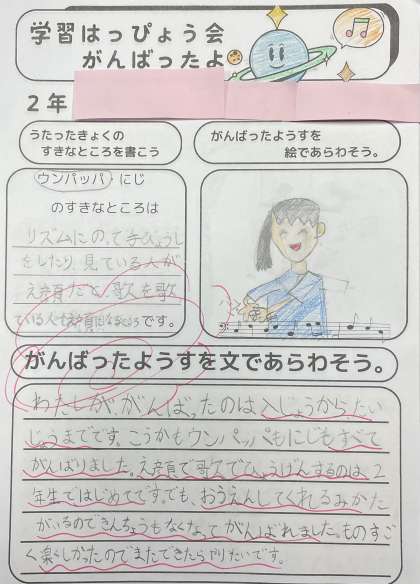 学習はっぴょう会
がんばったよ
2年
うたったきょくの
すきなところを書こう
がんばったようすを
絵であらわそう。
ウンパッパ・にじ
のすきなところは
リズムにのって手びょうし
をしたり、見ている人が
え顔だと、歌を歌
ている人もえ顔になるところです。
がんばったようすを文であらわそう。
わたしが、がんばったのは入じょうからたい
じょうまでです。こうかもウンパッパもにじもすべて
がんばりました。え顔で歌でひょうげんするのは、2
年生ではじめてです。でも、おうえんしてくれるみかた
がいるのできんちょうもなくなってがんばれました。ものすご
く楽しかったのでまたできたらやりたいです。